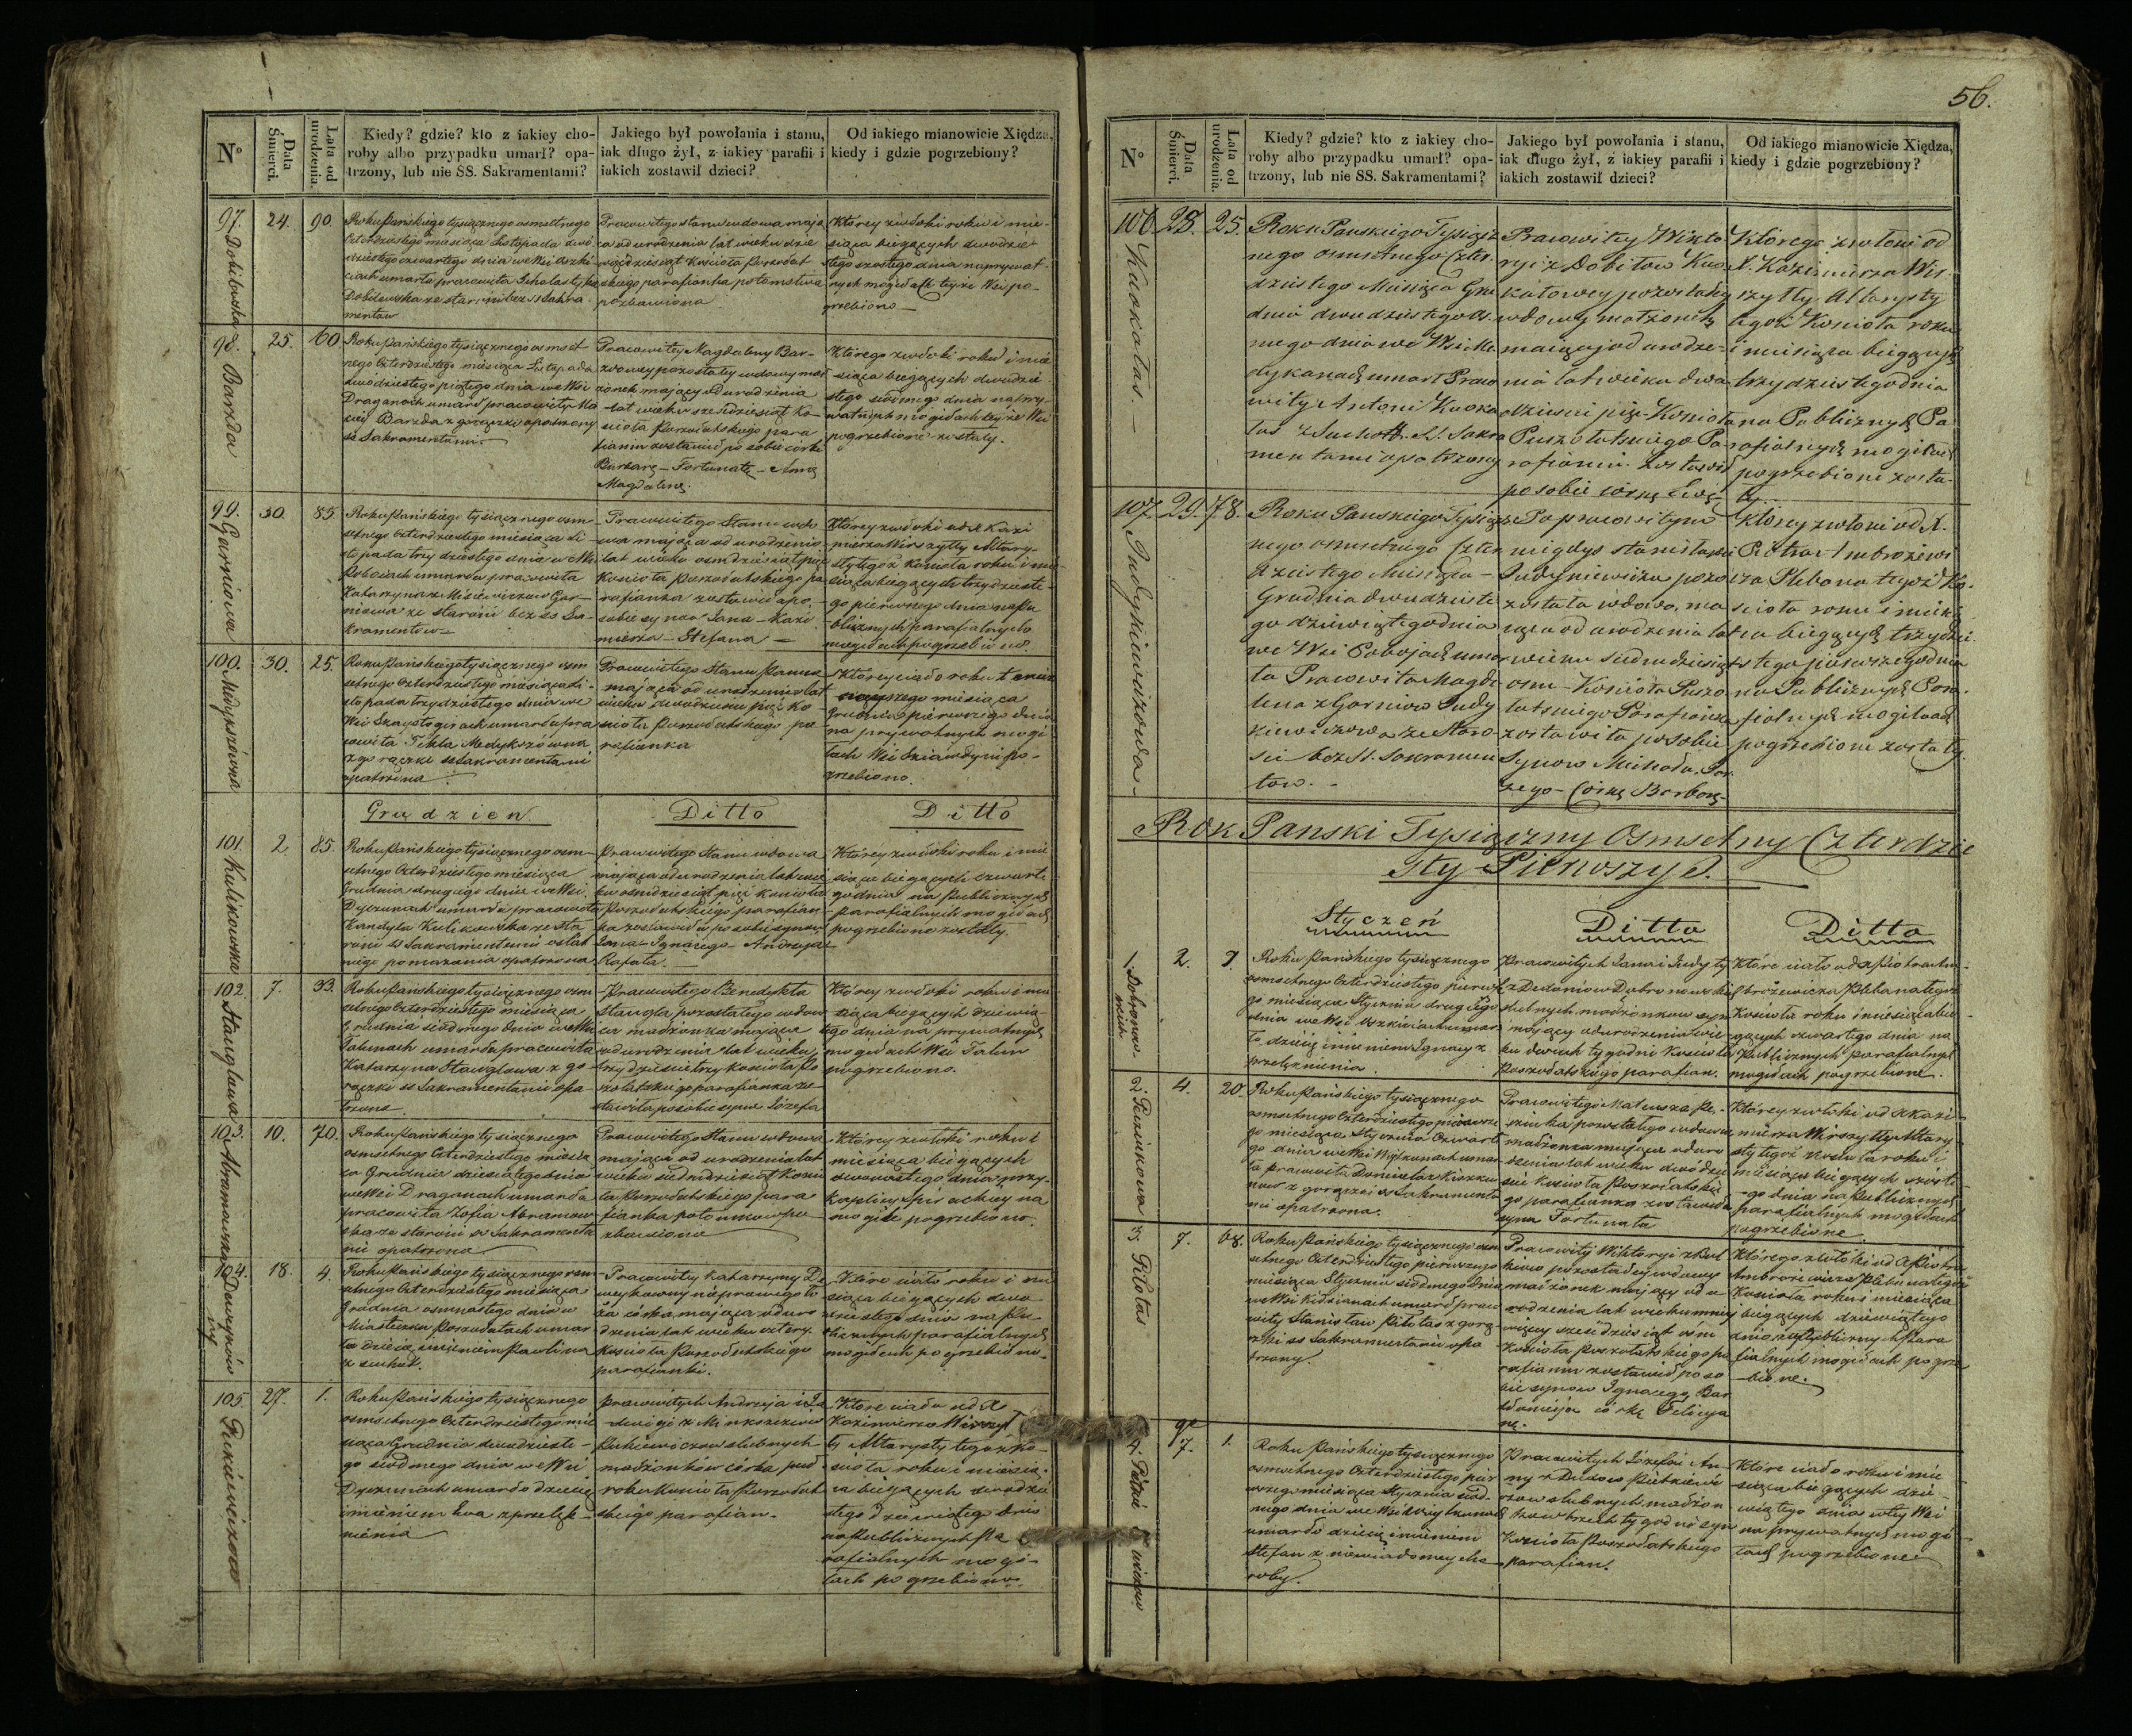 N°
Data Śmierci.
Lata od urodzenia.
Kiedy? gdzie? kto z iakiey cho-
roby albo przypadku umarł? opa-
trzony, lub nie SS. Sakramentami?
Jakiego był powołania i stanu,
iak długo żył, z iakiey parafii i
iakich zostawił dzieci?
Od iakiego mianowicie Xiędza,
kiedy i gdzie pogrzebiony?
97. Dobilowska
24.
90
Roku Pańskiego tysiącznego osmsetnego
Czterdziestego miesiąca Listopada dwó
dziestego czwartego dnia we Wsi
umarła pracowita Scholastyka
Dobilewska ze starości bez SS Sakra
mentow
Pracowitego stanu wdowa mają
ca od urodzenia lat wieku dzie
więdziesiąt Kościoła Poszołat
skiego parafianka potomstwa
pozbawiona
Którey zwłoki roku i mie-
siąca bieżących dwódzie
stego szostego dnia na prywat
nych mogiłach teyże Wsi po-
grzebiono
98. Barzda
25.
60
Roku Pańskiego tysiącznego osmset
nego Czterdziestego miesiąca Listopada
dwodziestego piątego dnia we Wsi
Draganach umarł pracowity Ma
ciey Barzda z gorączki opatrzony
SS Sakramentami
Pracowitey Magdaleny Bar-
zdowey pozostałey wdowy mał
żonek mający od urodzenia
lat wieku sześćdziesiąt Ko-
ścioła Poszołatskiego para
fianin zostawił po sobie córki
Barbarę – Fortunatę – Annę
Magdalenę.
Którego zwłoki roku i mie
siąca bieżących dwudzie
stego siódmego dnia na pry-
watnych mogiłach teyże Wsi
pogrzebione zostały.
99. Garniowa
30.
85
Roku Pańskiego tysiącznego osm
setnego Czterdziestego miesiąca Li-
stopada trzydziestego dnia w Wsi
Pobojach umarła pracowita
Katarzyna z Misiewiczow Gar-
niowa ze starości bez SS Sa-
kramentow
Pracowitego Stanu wdo
wa mająca od urodzenia
lat wieku osmdziesiąt pięć
Kościoła Poszołatskiego pa
rafianka zostawiła po
sobie synow Jana – Kazi
mierza – Stefana –
Którey zwłoki od X Kazi
mierza Wirszyłły Altary-
sty tegoż Kościoła roku i mie
siąca bieżących trzydzieste-
go pierwszego dnia na Pu
blicznych parafialnych
mogiłach pogrzebiono.
100. Medyksżówna
30.
25.
Roku Pańskiego tysiącznego osm
setnego Czterdziestego miesiąca Li-
stopada trzydziestego dnia we
Wsi Skaystogirach umarła pra
cowita Tekla Medykszówna
z gorączki SS Sakramentami
opatrzona
Pracowitego Stanu Panna
mająca od urodzenia lat
wieku dwadzieścia pięć Ko-
ścioła Poszołatskiego pa
rafianka
Którey ciało roku
miesiąca
Grudnia pierwszego dnia
na prywatnych mogi
łach Wsi po-
grzebiono
Grudzien
Ditto
Ditto
101. Kulikowska
2
85.
Roku Pańskiego tysiącznego osm-
setnego Czterdziestego miesiąca
Grudnia drugiego dnia we Wsi
umarła pracowita
Kulikowska ze sta
rości SS Sakramentami ostat
niego pomazania opatrzona
Pracowitego Stanu wdowa
mająca od urodzenia lat wie
ku osmdziesiąt pięć Kościoła
Poszołatskiego parafian
ka zostawiła po sobie synow
Jana – Ignacego – Andrzeja
Rafała.
Którey zwłoki roku i mie
siąca bieżących czwarte
go dnia na Publicznych
parafialnych mogiłach
pogrzebione zostały.
102. Stauglawa
7.
33
Roku Pańskiego tysiącznego osm
setnego Czterdziestego miesiąca
Grudnia siódmego dnia we Wsi
Talunach umarła pracowita
Katarzyna Stauglowa z go
rączki SS Sakramentami opa
trzona
Pracowitego Benedykta
Staugla pozostałego wdow
ca małżonka mająca
od urodzenia lat wieku
trzydzieści trzy Kościoła Po
szołatskiego parafianka zo
stawiła po sobie syna Józefa
Którey zwłoki roku i mie
siąca bieżących dziewią-
tego dnia na prywatnych
mogiłach Wsi Talun
pogrzebiono.
103. Abramowska
10.
70.
Roku Pańskiego tysiącznego
osmsetnego Czterdziestego miesią
ca Grudnia dziesiątego dnia
we Wsi Draganach umarła
pracowita Zofia Abramow
ska ze starości SS Sakramenta
mi opatrzona
Pracowitego Stanu wdowa
mająca od urodzenia lat
wieku siedmdziesiąt Kościo
ła Poszołatskiego para
fianka potomstwa po
zbawiona
Którey zwłoki roku i
miesiąca bieżących
dwunastego dnia przy
Kaplicy na
mogiłe pogrzebiono.
104.
18.
4.
Roku Pańskiego tysiącznego osm
setnego Czterdziestego miesiąca
Grudnia osmnastego dnia w
Miasteczku Poszołatach umar
ła dziecię imieniem Paulina
z suchot.
Pracowitey Katarzyny
nieprawego ło
ża córka mająca od uro
dzenia lat wieku cztery
Kościoła Poszołatskiego
parafianki.
Które ciało roku i mie
siąca bieżących dwu
dziestego dnia na Pu
blicznych parafialnych
mogiłach pogrzebiono.
105.
27.
1.
Roku Pańskiego tysiącznego
osmsetnego Czterdziestego mie
siąca Grudnia dwudzieste-
go siódmego dnia we Wsi
umarło dziecię
imieniem Ewa z przelęk-
nienia
Pracowitych Andrzeja i Ja
dwigi z
slubnych
małżonków córka puł
roku Kościoła Poszołat
skiego parafian.
Które ciało od X
Kazimierza Wirszył
ły Altarysty tegoż Ko-
ścioła roku i miesią-
ca bieżących dwudzie
stego dziewiątego dnia
na Publicznych Pa
rafialnych mogi-
łach pogrzebiono.
56.
N°
Data Śmierci.
Lata od urodzenia.
Kiedy? gdzie? kto z iakiey cho-
roby albo przypadku umarł? opa-
trzony, lub nie SS. Sakramentami?
Jakiego był powołania i stanu,
iak długo żył, z iakiey parafii i
iakich zostawił dzieci?
Od iakiego mianowicie Xiędza,
kiedy i gdzie pogrzebiony?
106 Kuokałas.
28.
25.
Roku Panskiego Tysiącz
nego osmsetnego Czter-
dziestego Miesiąca Gru
dnia dwudziestego os-
mego dnia we Wsi Me
dykanach umarł Praco
wity Antoni Kuoka
łas z Suchoth. SS. Sakra
mentami opatrzony
Pracowitey Wikto
ryi z Dobiłow Kuo
kałowey pozostałey
wdowy małżonek
maiący od urodze-
nia lat wieku dwa
dziescia pięć Kościoła
Puszołatskiego Pa-
rafianin. Zostawił
po sobie córkę Ewę
Którego zwłoki od
X. Kazimierza Wir-
szyłły Altarysty
tegoż Kościoła roku
i miesiąca bieżących
trzydziestego dnia
na Publicznych Pa
rafialnych mogiłach
pogrzebione zosta-
ły.
107. Judykiewiczowa
29.
78.
Roku Panskiego Tysiącz
nego osmsetnego Czter
dziestego Miesiąca –
Grudnia dwudzieste
go dziewiątego dnia
we Wsi Pobojach umar
ła Pracowita Magda
lena z Garniow Judy
kiewiczowa ze Staro
ści bez SS. Sakramen
tow.
Po pracowitym
niegdys Stanisławie
Judykiewiczu pozo
została wdowa, ma
iąca od urodzenia lat
wieku siedmdziesiąt
osm – Kościoła Puszo
łatskiego Parafianka
zostawiła po sobie
Synow Michała, Jer
zego – Córkę Barbarę
Którey zwłoki od X.
Piotra Ambrożewi
cza Plebana tegoż Ko-
ścioła roku i miesią
ca bieżących trzydzie
stego pierwszego dnia
na Publicznych Para-
fialnych mogiłach
pogrzebione zostały.
Rok Panski Tysiączny Osmsetny Czterdzie
sty Pierwszy
Styczeń
Ditto
Ditto
1
2.
Roku Pańskiego tysiącznego
osmsetnego Czterdziestego pierwsze
go miesiąca Stycznia drugiego
dnia we Wsi umar
ło dziecię imieniem Ignacy z
przelęknienia.
Pracowitych Jana i Judyty
slubnych małżonkow syn
mający od urodzenia wie
ku dwóch tygodni Kościoła
Poszołatskiego parafian.
Które ciało od X Piotra Am-
brożewicza Plebana tegoż
Kościoła roku i miesiąca bie
żących czwartego dnia na
Publicznych parafialnych
mogiłach pogrzebione.
2
4.
20.
Roku Pańskiego tysiącznego
osmsetnego Czterdziestego pierwsze
go miesiąca Stycznia Czwarte
go dnia we Wsi umar
ła pracowita
z gorączki SS Sakramenta
mi opatrzona.
Pracowitego Mateusza
pozostałego wdowca
małżonka mająca od uro
dzenia lat wieku dwódzie
ścia Kościoła Poszołatskie
go parafianka zostawiła
syna Fortunata
Którey zwłoki od X Kazi-
mierza Wirszyłły Altary-
sty tegoż Kościoła roku i
miesiąca bieżących szoste-
go dnia na Publicznych
parafialnych mogiłach
pogrzebione
3 Pilotas
7.
68.
Roku Pańskiego tysiącznego osm
setnego Czterdziestego pierwszego
miesiąca Stycznia siódmego dnia
we Wsi Kidzianach umarł praco
wity Stanisław Pilotas z gorą
czki SS Sakramentami opa
trzony.
Pracowitey Wiktoryi z
pozostałey wdowy
małżonek mający od u
rodzenia lat wieku mniey
więcey sześćdziesiąt ośm
Kościoła Poszołatskiego pa
rafianin zostawił po so
bie synow Ignacego Bar
tłomieja córkę Felicya
nę.
Którego zwłoki od X Piotra
Ambrożewicza Plebana tegoż
Kościoła roku i miesiąca
bieżących dziewiątego
dnia na Publicznych Para
fialnych mogiłach pogrze
bione.
4.
7.
1.
Roku Pańskiego tysiącznego
osmsetnego Czterdziestego pier
wszego miesiąca Stycznia siód-
mego dnia we Wsi
umarło dziecię imieniem
Stefan z niewiadomey cho-
roby.
Pracowitych Józefa i An-
ny z
slubnych małżon
kow trzech tygodni syn
Kościoła Poszołatskiego
parafian.
Które ciało roku i mie
siąca bieżących dzie-
wiątego dnia w tey Wsi
na prywatnych mogi
łach pogrzebione